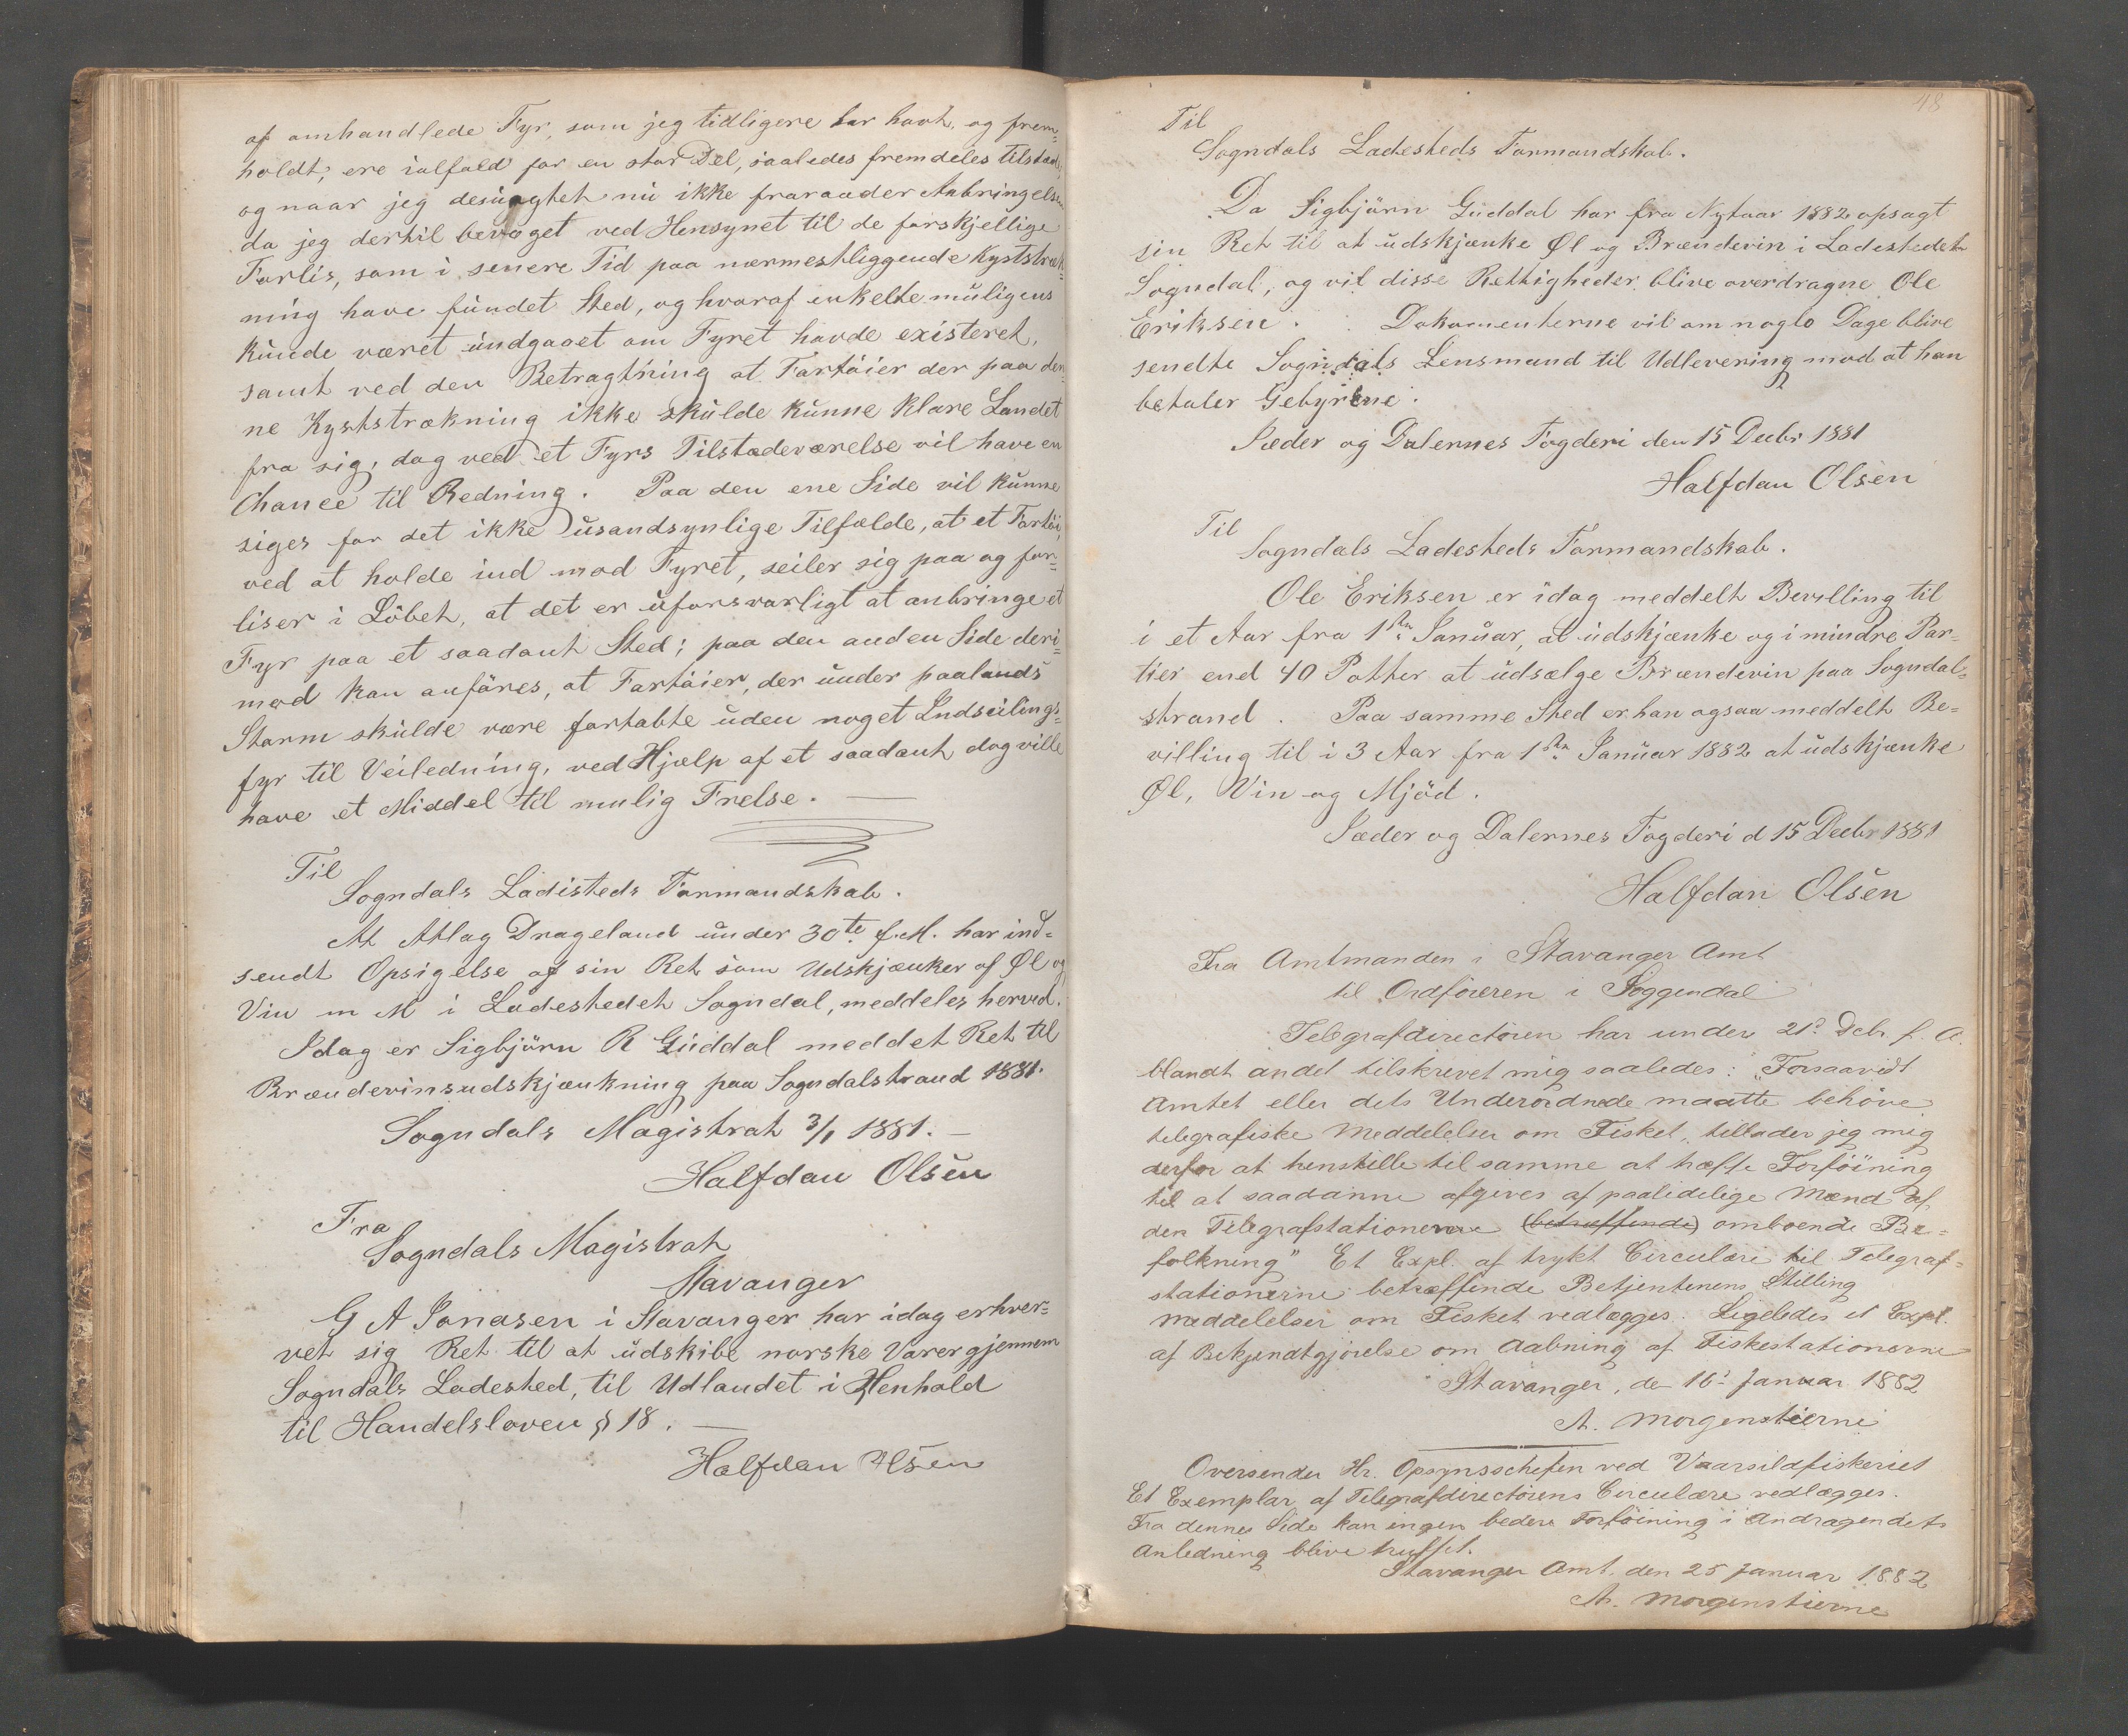 af omhandlede Fyr, som jeg tidligere har havt, og frem-
holdt, ere ialfald for en stor Del, saaledes fremdeles tilstæde,
og naar jeg desuagtet nu ikke fraraader Anbringelsen
da jeg dertil bevæget ved Hensynet til de forskjellige
Forlis, som i senere Tid paa nærmestliggende Kyststræk-
ning have fundet Sted, og hvoraf enkelte muligens
kunde været undgaaet om Fyret havde existeret,
samt ved den Betragtning at Fartöier der paa den-
ne Kyststrækning ikke skulde kunne klare Landet
fra sig, dog ved et Fyrs Tilstædeværelse vil have en
Chance til Redning. Paa den ene Side vil kunne
siges for det ikke usandsynlige Tilfælde, at et Fartöi,
ved at holde ind mod Fyret, seiler sig paa og for-
liser i Löbet, at det er uforsvarligt at anbringe et
Fyr paa et saadant Sted; paa den anden Side deri-
mod kan anföres, at Fartöier, der under paalands
Storm skulde være fortabte uden noget Indseilings-
fyr til Veiledning, ved Hjælp af et saadant dog ville
have et Middel til mulig Frelse.
Til
Sogndals Ladisteds Formandskab.
At Atlag Drageland under 30te f.M. har ind-
sendt Opsigelse af sin Ret som Udskjænker af Øl og
Vin m M i Ladestedet Sogndal, meddeles herved.
Idag er Sigbjörn R Guddal meddet Ret til
Brændevinsudskjænkning paa Sogndalstrand 1881.
Sogndals Magistrat 3/1 1881.
Halfdan Olsen
Fra
Sogndals Magistrat
Stavanger
G A Jonasen i Stavanger har idag erhver-
vet sig Ret til at udskibe norske Varer gjennem
Sogndals Ladested, til Udlandet i Henhold
til Handelsloven § 18.
Halfdan Olsen
48
Til
Sogndals Ladesteds Formandskab.
Da Sigbjörn Guddal har fra Nytaar 1882 opsagt
sin Ret til at udskjænke Øl og Brændevin i Ladestedet
Sogndal, og vil disse Rettigheder blive overdragne Ole
Eriksen. Dokumenterne vil om nogle Dage blive
sendte Sogndals Lensmand til Udlevering mod at han
betaler Gebyrene.
Jæder og Dalernes Fogderi den 15 Decbr 1881
Halfdan Olsen
Til
Sogndals Ladesteds Formandskab.
Ole Eriksen er idag meddelt Bevilling til
i et Aar fra 1ste Januar, at udskjænke og i mindre Par-
tier end 40 Potter at udsælge Brændevin paa Sogndal-
strand. Paa samme Sted er han ogsaa meddelt Be-
villing til i 3 Aar fra 1ste Januar 1882 at udskjænke
Øl, Vin og Mjöd.
Jæder og Dalernes Fogderi d 15 Decbr 1881
Halfdan Olsen
Fra Amtmanden i Stavanger Amt
til Ordföreren i Soggendal
Telegrafdirectören har under 21de Dcbr f. A.
blandt andet tilskrevet mig saaledes: "Forsaavidt
Amtet eller dets Underordnede maatte behöve
telegrafiske Meddelelser om Fisket, tillader jeg mig
derfor at henstille til samme at træffe Forföining
til at saadanne afgives af paalidelige Mænd af
den Telegrafstationerne (betræffende) omboende Be-
folkning" Et Expl. af trykt Circulære til Telegraf-
stationerne betræffende Betjentenens Stilling
Meddelelser om Fisket vedlægges. Ligeledes et Expl.
af Bekjendtgjörelse om Aabning af Fiskestationerne
Stavanger, den 16de Januar 1882
A. Morgenstierne
Oversendes Hr. Opsynschefen ved Vaarsildfiskeriet
Et Exemplar af Telegrafdirectörens Circulære vedlægges.
Fra dennes Side kan ingen bedere Forföining i Andragendets
Anledning blive truffet.
Stavanger Amt, den 25 Januar 1882
A. Morgenstierne